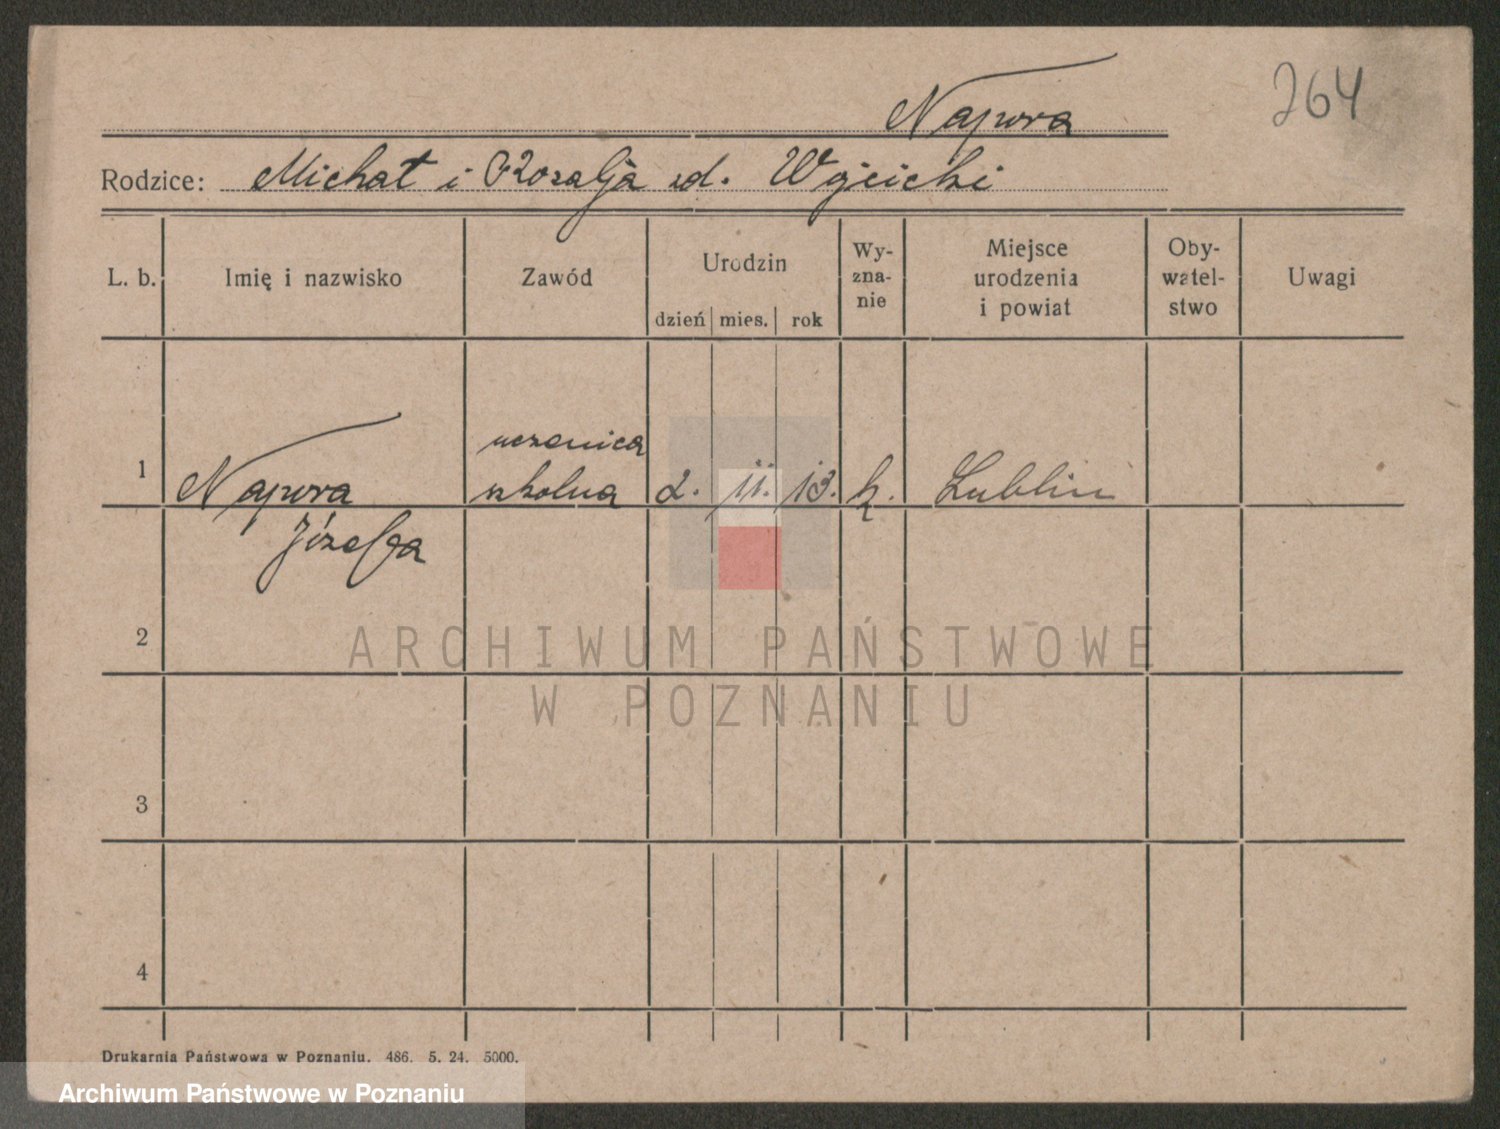 Napora
264
Rodzice: Michał i Rozalja zd. Wójcicki
L. b. Imię i nazwisko Zawód Urodzin dzień mies. rok Wy-zna-nie Miejsce urodzenia i powiat Oby-watel-stwo Uwagi
uczenica
1 Napora szkolna 2. 11. 13. k. Lublin
Józefa
2
ARCHIWUM PAŃSTWOWE
W POZNANIU
3
4
Drukarnia Państwowa w Poznaniu. 486. 5. 24. 5000.
Archiwum Państwowe w Poznaniu